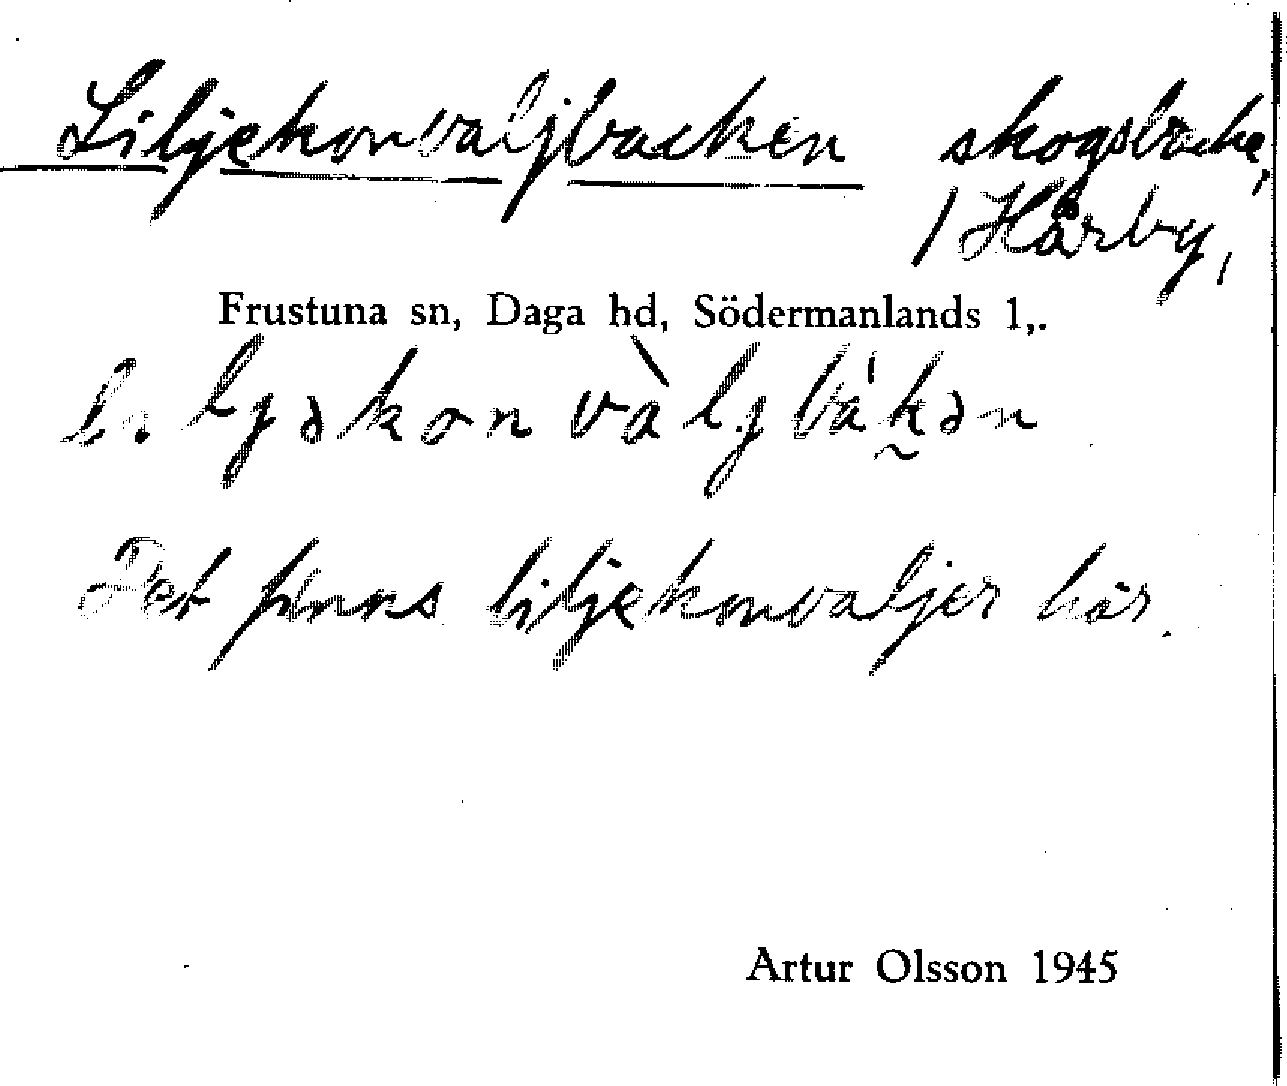 Liljekonvaljbacken skogsbacke,
/ Hårby,
Frustuna sn, Daga hd, Södermanlands l,.
Det finns liljekonvaljer här.
Artur Olsson 1945